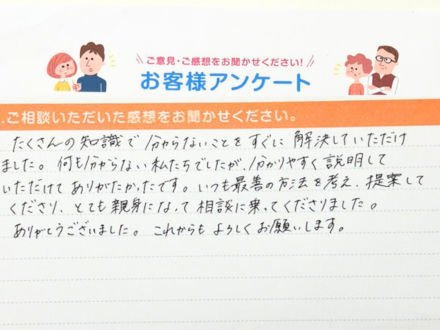 ご意見・ご感想をお聞かせください!
お客様アンケート
.ご相談いただいた感想をお聞かせください。
たくさんの知識で分からないことをすぐに解決していただけ
ました。何も分からない私たちでしたが、分かりやすく説明して
いただけてありがたかったです。いつも最善の方法を考え、提案して
くださり、とても親身になって相談に乗ってくださりました。
ありがとうございました。これからもよろしくお願いします。